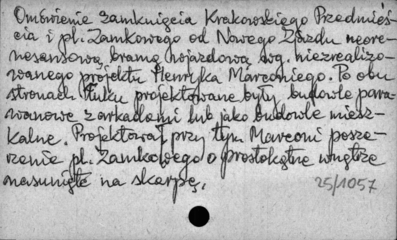 Omówienie zamknięcia Krakowskiego Przedmieś-
cia i pl. Zamkowego od Nowego Zjazdu neore-
nesansową bramą wjazdową wg. niezrealizo-
wanego projektu Henryka Marconiego. Po obu
stronach łuku projektowane były budowle para-
wanowe z arkadami lub jako budowle miesz-
kalne. Projektował przy tym Marconi posze-
rzenie pl. Zamkowego o prostokątne wnętrze
nasunięte na skarpę.
25/1057